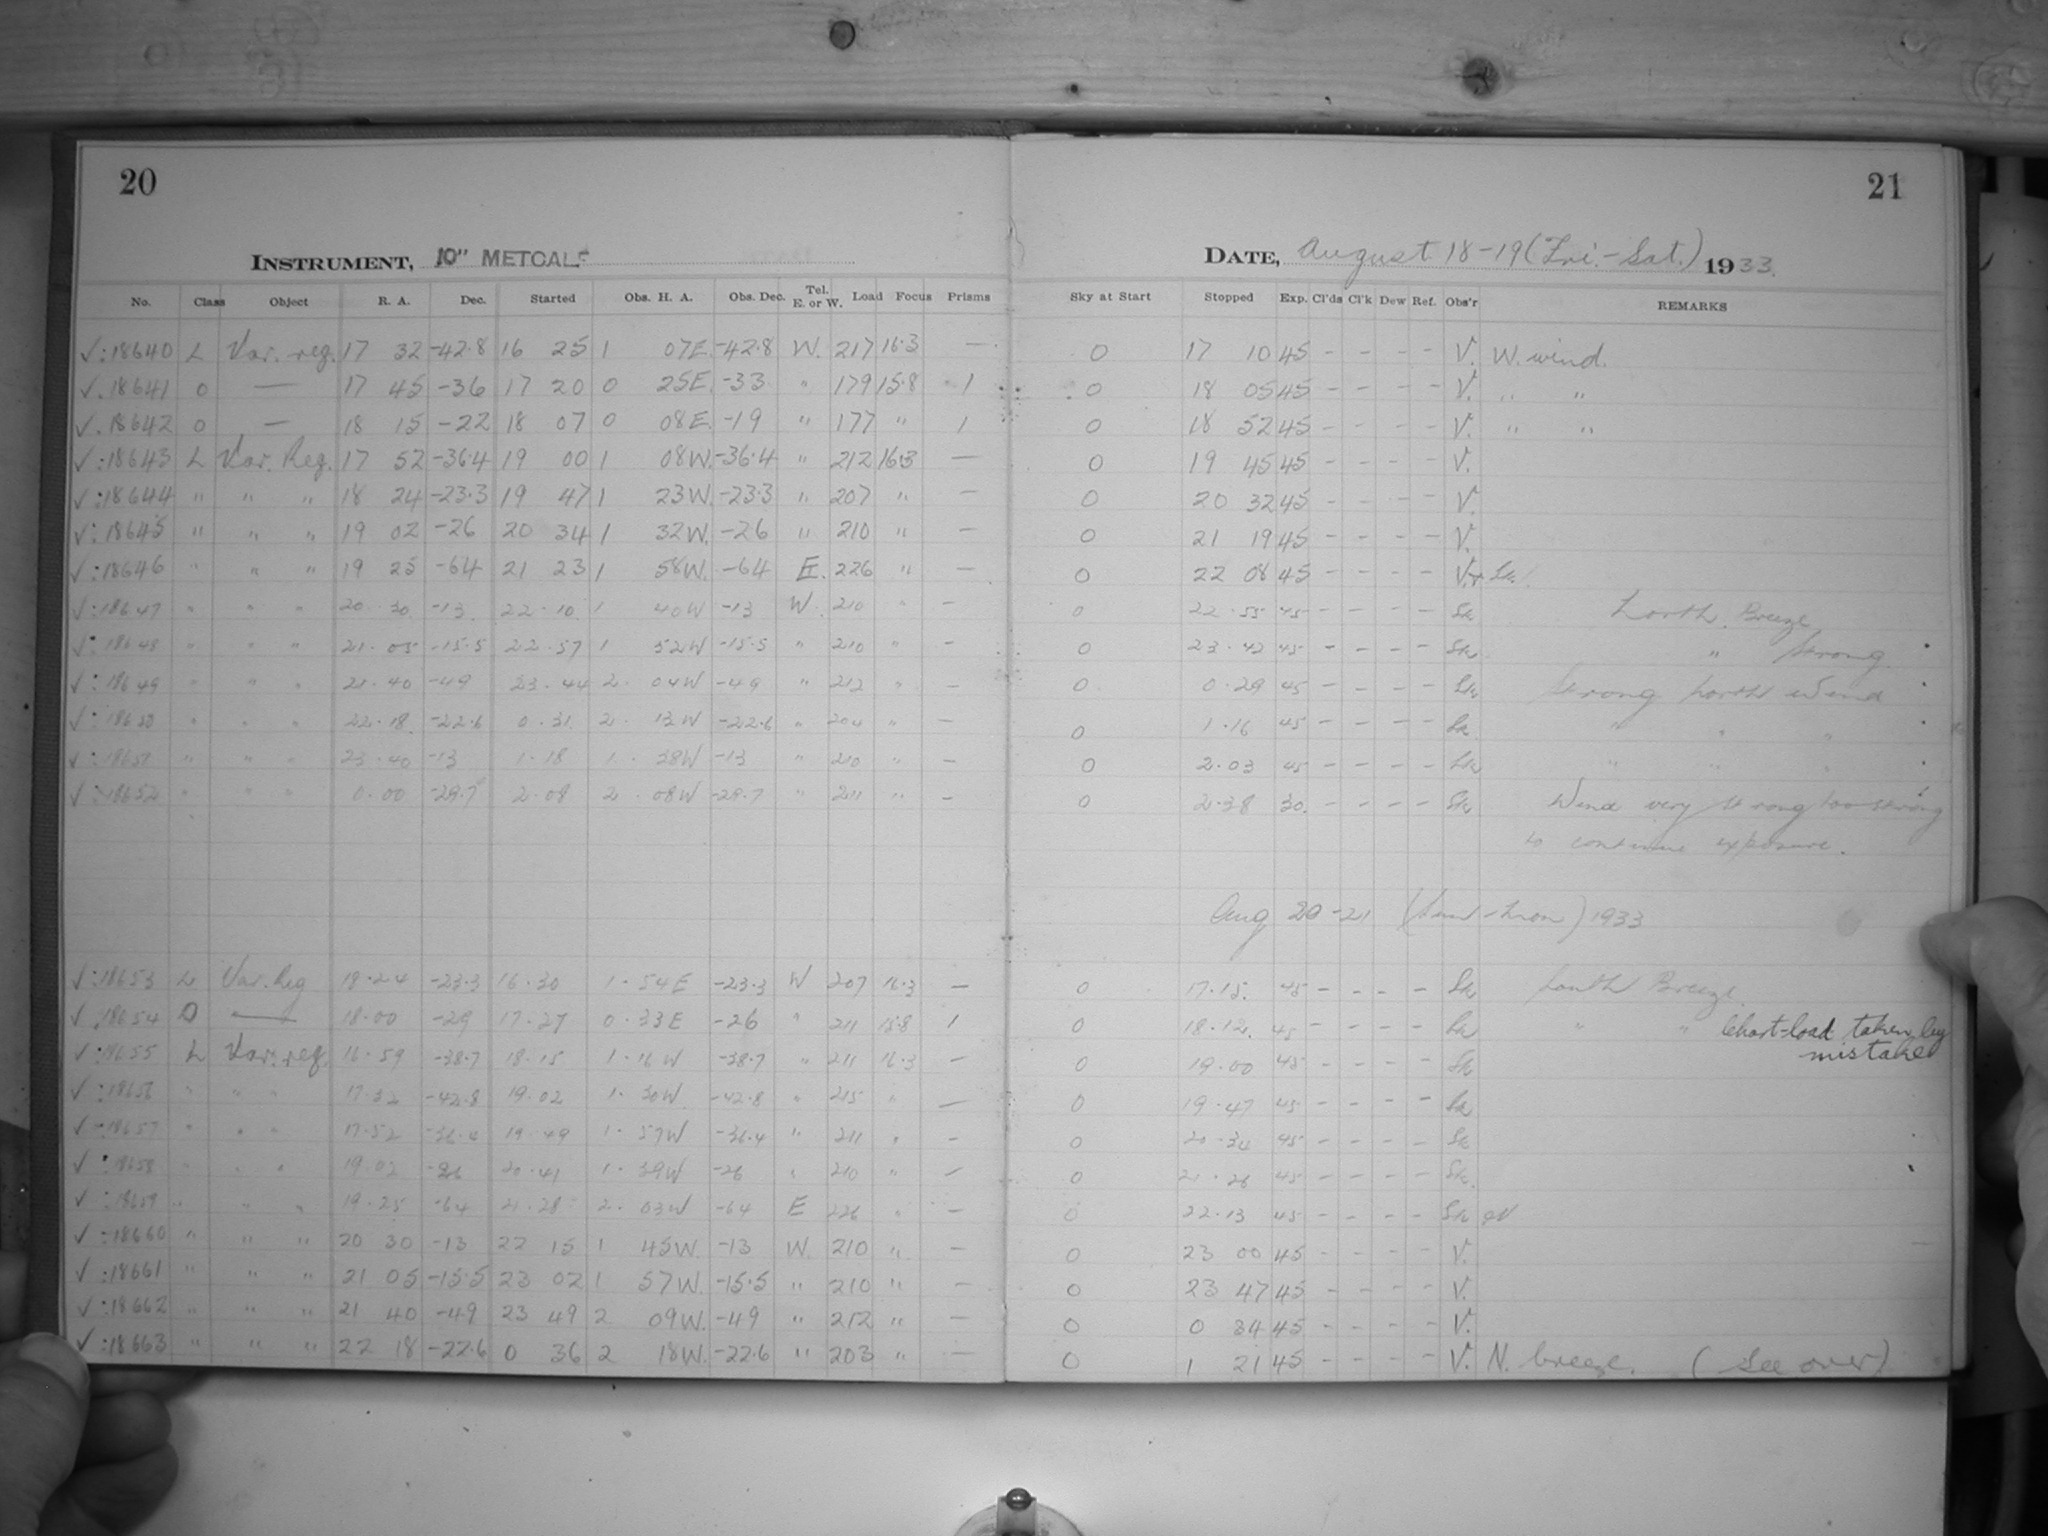 20
21
INSTRUMENT, 10" METCALF
DATE, August 18-19 (Fri.-Sat.) 1933.
No. Class Object R. A. Dec. Started Obs. H. A. Obs. Dec. Tel. E. or W. Load Focus Prisms Sky at Start Stopped Exp. Cl'ds Cl'k Dew Ref. Obs'r REMARKS
√:18640 L Var. reg. 17 32 -42.8 16 25 1 07E. -42.8 W. 217 16.3 — 0 17 10 45 - - - - V. W. wind.
√.18641 O — 17 45 -36 17 20 0 25E. -33 " 179 15.8 1 0 18 05 45 - - - - V. " "
√.18642 O — 18 15 -22 18 07 0 08E. -19 " 177 " 1 0 18 52 45 - - - - V. " "
√:18643 L Var. Reg. 17 52 -36.4 19 00 1 08W. -36.4 " 212 16.3 — 0 19 45 45 - - - - V.
√:18644 " " " 18 24 -23.3 19 47 1 23W. -23.3 " 207 " — 0 20 32 45 - - - - V.
√:18645 " " " 19 02 -26 20 34 1 32W. -26 " 210 " — 0 21 19 45 - - - - V.
√:18646 " " " 19 25 -64 21 23 1 58W. -64 E. 226 " — 0 22 08 45 - - - - V.+ Sk.
√:18647 " " " 20.30 -13 22.10 1 40W -13 W. 210 " — 0 22.55 45 - - - - Sk North Breeze
√:18648 " " " 21.05 -15.5 22.57 1 52W -15.5 " 210 " — 0 23.42 45 - - - - Sk " Strong
√:18649 " " " 21.40 -49 23.44 2. 04W -49 " 212 " — 0 0.29 45 - - - - Sk Strong North Wind
√:18650 " " " 22.18 -22.6 0.31 2. 13W -22.6 " 204 " — 0 1.16 45 - - - - Sk " " "
√:18651 " " " 23.40 -13 1.18 1. 38W -13 " 210 " — 0 2.03 45 - - - - Sk " " "
√:18652 " " " 0.00 -29.7 2.08 2. 08W -29.7 " 211 " — 0 2.38 30. - - - - Sk Wind very strong too strong
to continue exposure.
Aug 20-21 (Sun-Mon) 1933
√:18653 L Var. Reg 18.24 -23.3 16.30 1.54E -23.3 W 207 16.3 — 0 17.15. 45 - - - - Sk South Breeze.
√:18654 O — 18.00 -29 17.27 0.33E -26 " 211 15.8 1 0 18.12. 45 - - - - Sk " " Chart-load taken by
mistake
√:18655 L Var. reg. 16.59 -38.7 18.15 1.16W -38.7 " 211 16.3 — 0 19.00 45 - - - - Sk
√:18656 " " " 17.32 -42.8 19.02 1. 30W -42.8 " 215 " — 0 19.47 45 - - - - Sk
√:18657 " " " 17.52 -36.4 19.49 1.57W -36.4 " 211 " — 0 20.34 45 - - - - Sk
√:18658 " " " 19.02 -26 20.41 1.39W -26 " 210 " — 0 21.26 45 - - - - Sk.
√:18659 " " " 19.25 -64 21.28 2. 03W -64 E 226 " — 0 22.13 45 - - - - Sk + V
√:18660 " " " 20 30 -13 22 15 1 45W. -13 W. 210 " — 0 23 00 45 - - - - V.
√:18661 " " " 21 05 -15.5 23 02 1 57W. -15.5 " 210 " — 0 23 47 45 - - - - V.
√:18662 " " " 21 40 -49 23 49 2 09W. -49 " 212 " — 0 0 34 45 - - - - V.
√:18663 " " " 22 18 -22.6 0 36 2 18W. -22.6 " 203 " — 0 1 21 45 - - - - V. N. breeze. (See over)